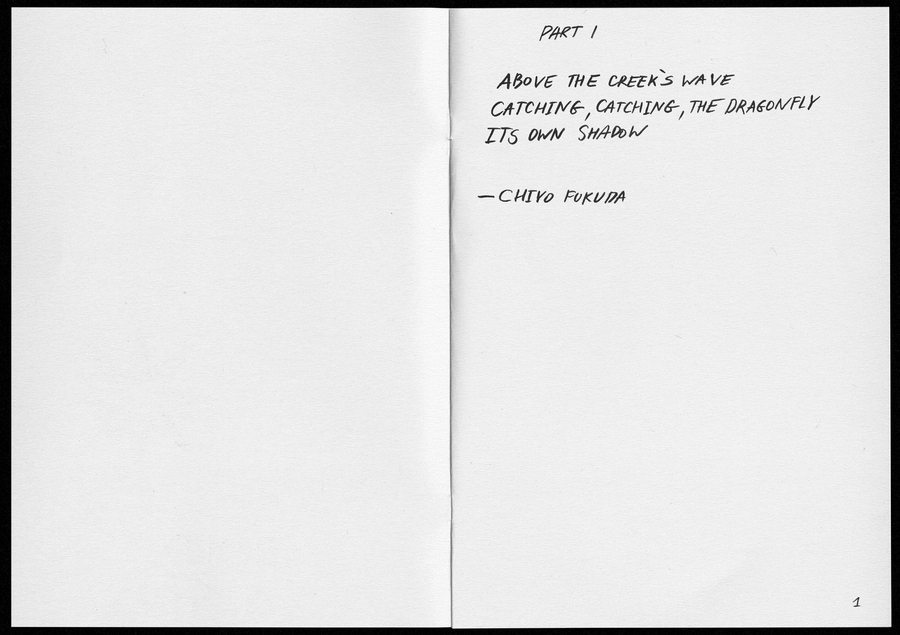 PART 1
ABOVE THE CREEK`S WAVE
CATCHING, CATCHING, THE DRAGONFLY
ITS OWN SHADOW
—CHIYO FUKUDA
1